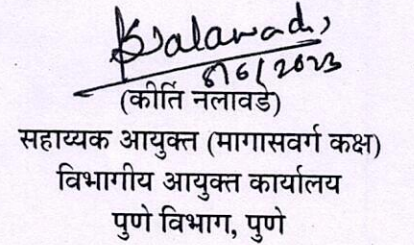 ८/6/2023
(कीर्ति नलावडे)
सहाय्यक आयुक्त (मागासवर्ग कक्ष)
विभागीय आयुक्त कार्यालय
पुणे विभाग, पुणे